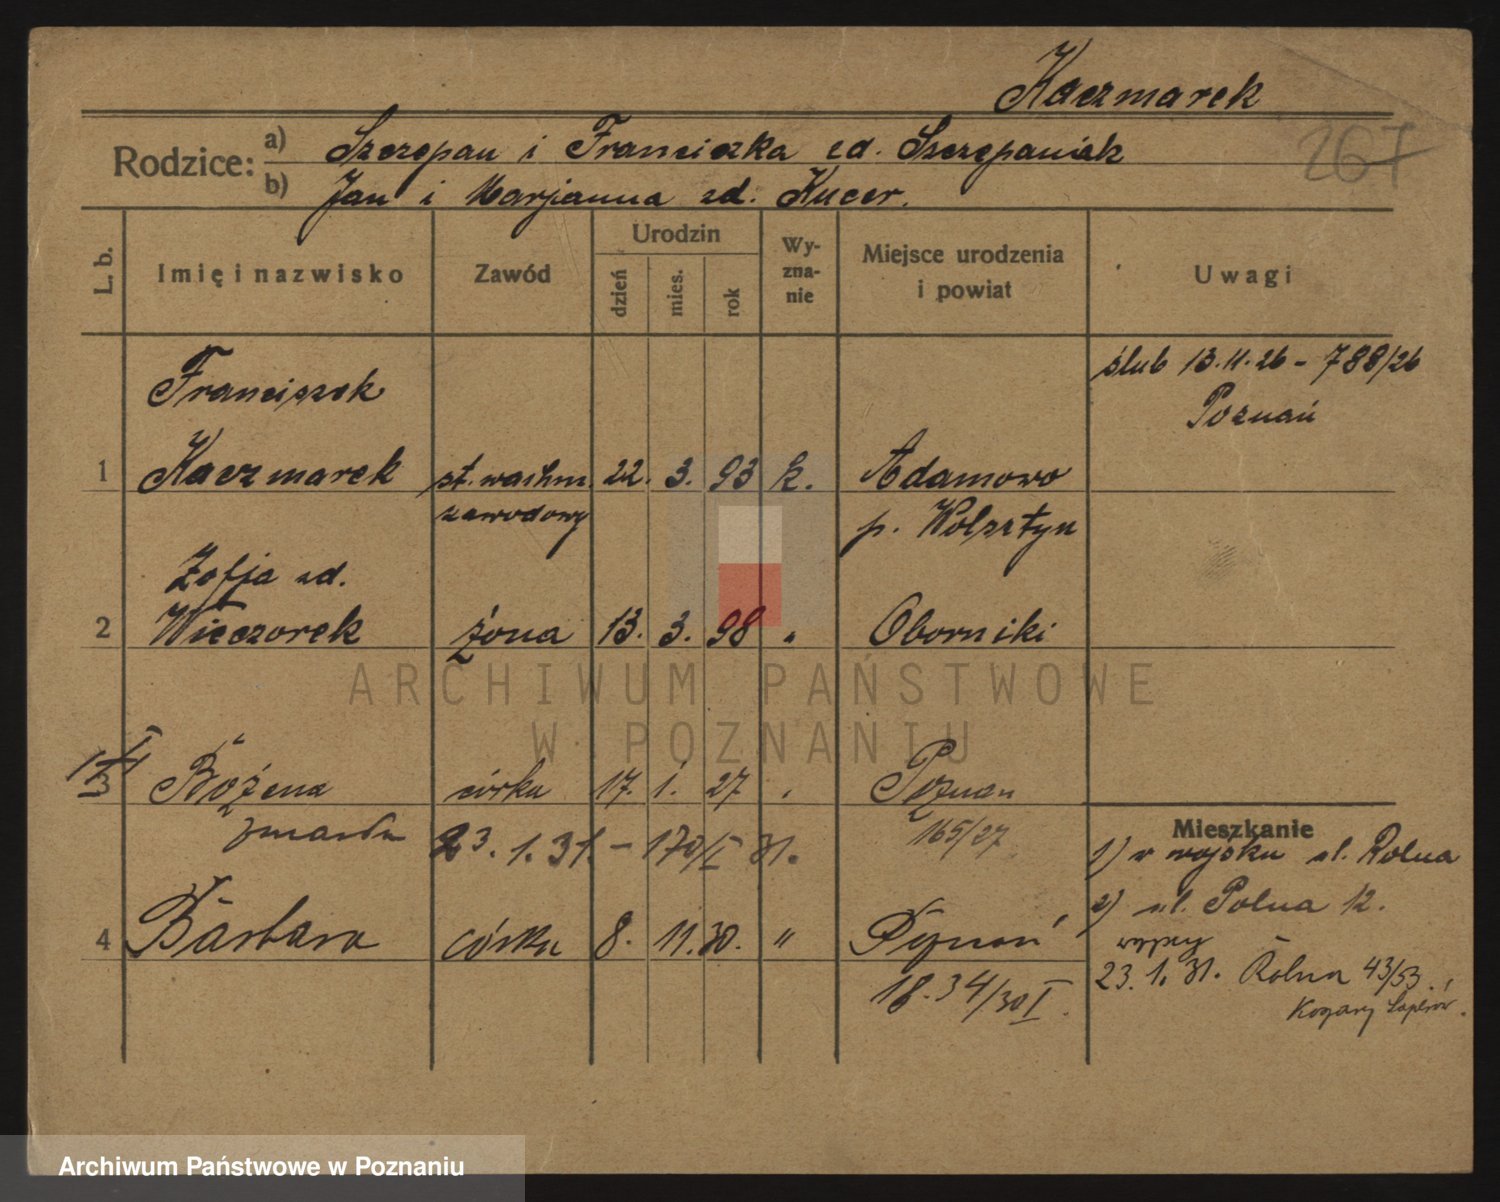 Kaczmarek
267
Rodzice: a) Szczepan i Franciszka zd. Szczepaniak
b) Jan i Marjanna zd. Kucer.
L. b. Imię i nazwisko Zawód Urodzin dzień mies. rok Wy-zna-nie Miejsce urodzenia i powiat Uwagi
ślub 13.11.26 - 788/26
Franciszek
Poznań
1 Kaczmarek st. wachm. 22. 3. 93 k. Adamowo
zawodowy p. Wolsztyn
Zofja zd.
2 Wieczorek żona 13. 3. 98 " Oborniki
ARCHIWUM PAŃSTWOWE
W POZNANIU
3 Bożena córka 17. 1. 27 " Poznań
zmarła 23. 1. 31. - 170/I 31. 165/27
Mieszkanie
1) w wojsku ul. Rolna
2) ul. Polna 12.
4 Barbara córka 8. 11. 30. " Poznań
23. 1. 31. Rolna 43/53.
18.34/30 I.
Archiwum Państwowe w Poznaniu